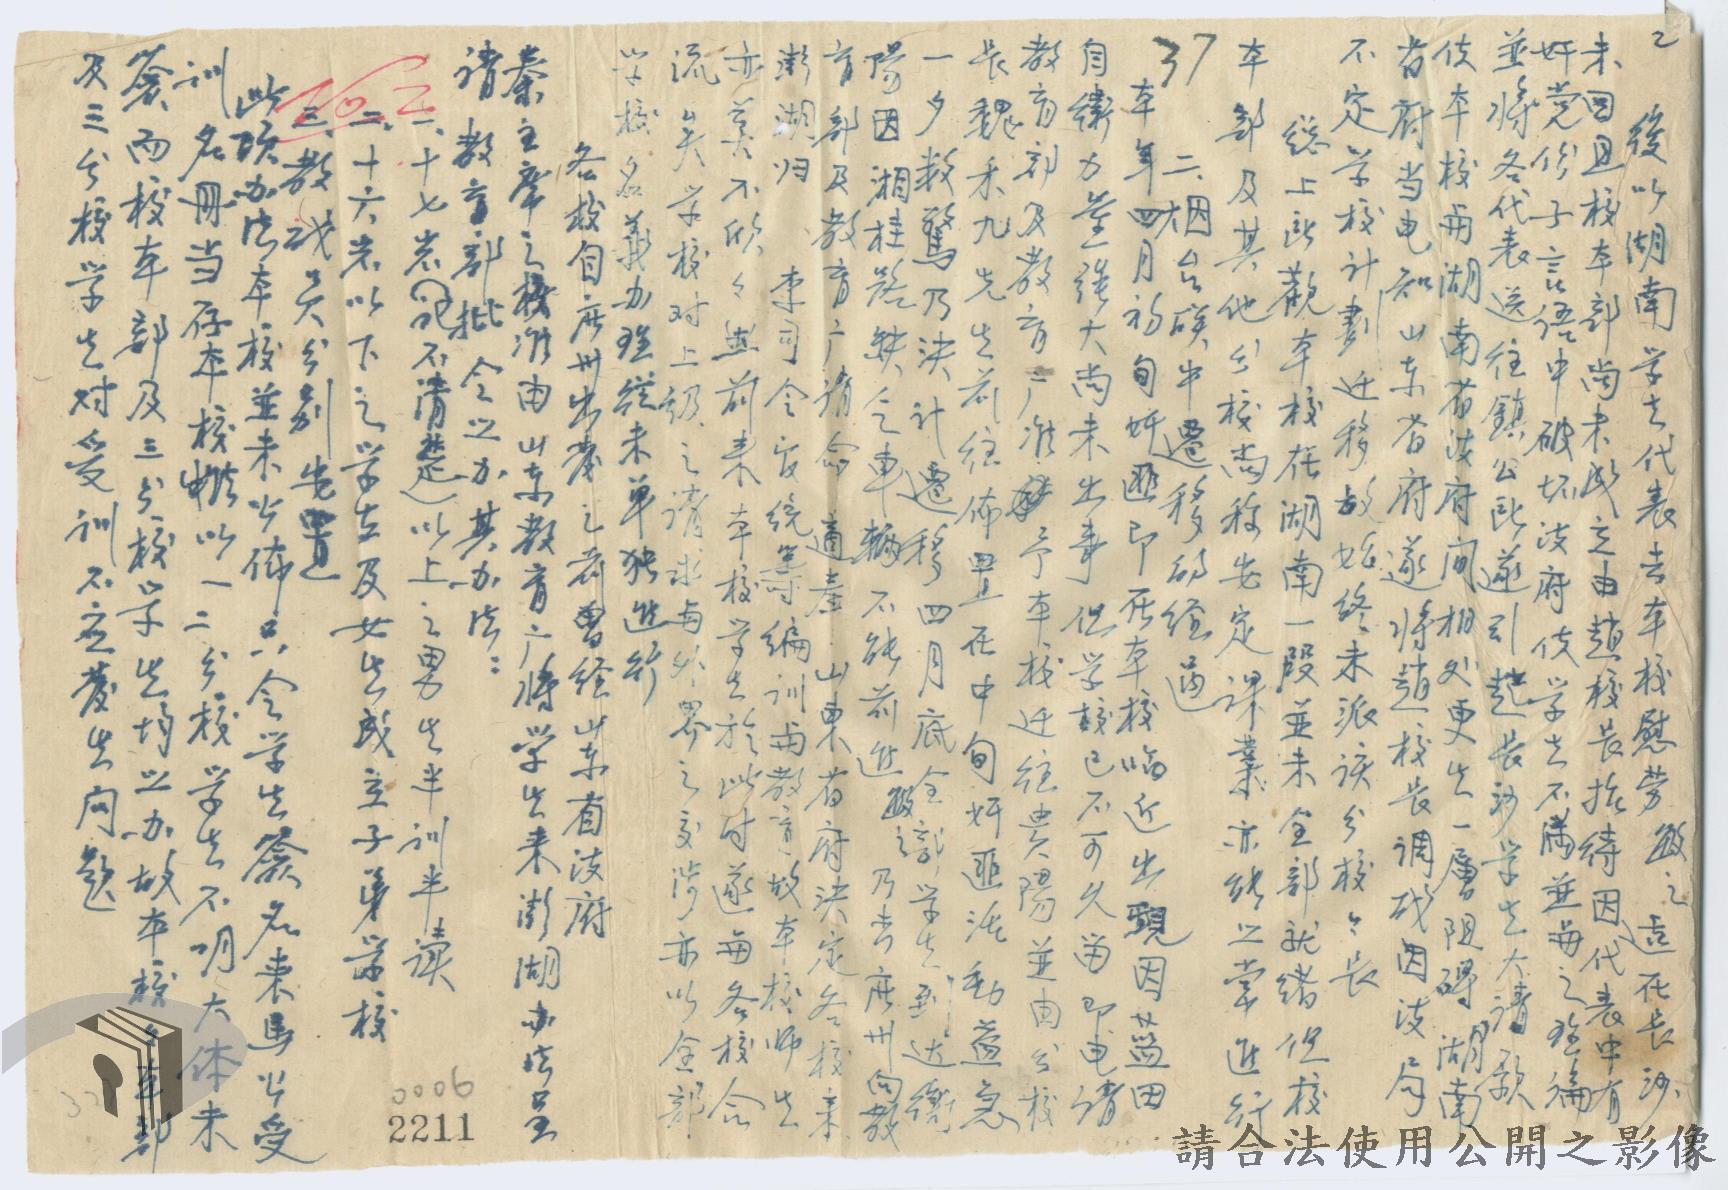 2
後以湖南学生代表去本校慰劳
未回且校本部尚未成立由趙校長招待因代表中有
奸党份子言語中破坏政府使学生不滿並与之
並将各代表送往鎮公所遂引起長沙学生大請願
使本校与湖南省政府间相处更生一層阻碍湖南
省府当电知山东省府遂将趙校長调
不定学校計劃迁移故始终未派该分校校長
總上所觀本校在湖南一段並未全部就绪但校
本部及其他分校尚称安定课業亦能照常進行
37
二、因台
中遷移的经過
本年四月初旬奸匪即在本校临近出現因益因
自衛力量强大尚未出事但学校已不可久留即电请
教育部及教育厅准予本校迁往贵陽並由分校
長
先生前往佈置在中旬奸匪活動益急
一夕数驚乃决計遷移四月底全部学生到达衡
陽因湘桂路缺乏車輛不能前進
乃去広州向教
育部及教育厅请命
山東省府决定各校来
澎湖归
李司令官统筹編訓与教育故本校师生
亦莫不欣欣
前来本校学生於此时遂与各校合
流矣学校对上級之请求与外界之交涉亦以全部
学校名義办理從未单独進行
各校自広州出發之前曾经山东省政府
秦主席之核准由山东教育厅将学生来澎湖办法呈
請教育部批令照办其办法：
一、十七岁
不清楚
以上之男生半訓半读
二、十六岁以下之学生及女生成立子弟学校
三、教职员分别安置
此项办法本校並未公佈只令学生簽名来馬公受
訓
名冊当存本校
以一二分校学生不明大体未
簽而校本部及三分校学生均照办故本校
本部
及三分校学生对受訓不应發生问题
0006
2211
請合法使用公開之影像